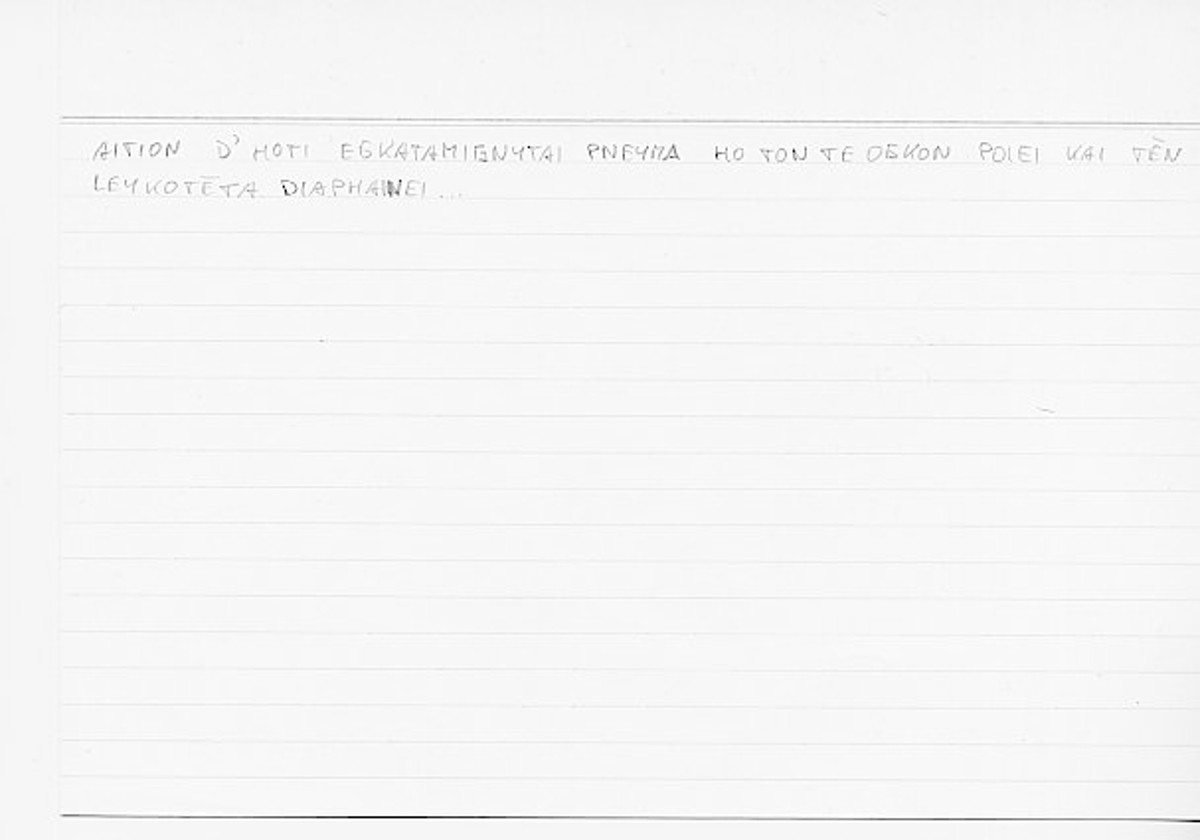 AITION D' HOTI EGKATAMIGNYTAI PNEYMA HO TON TE OGKON POIEI KAI TĒN
LEYKOTĒTA DIAPHAINEI ...